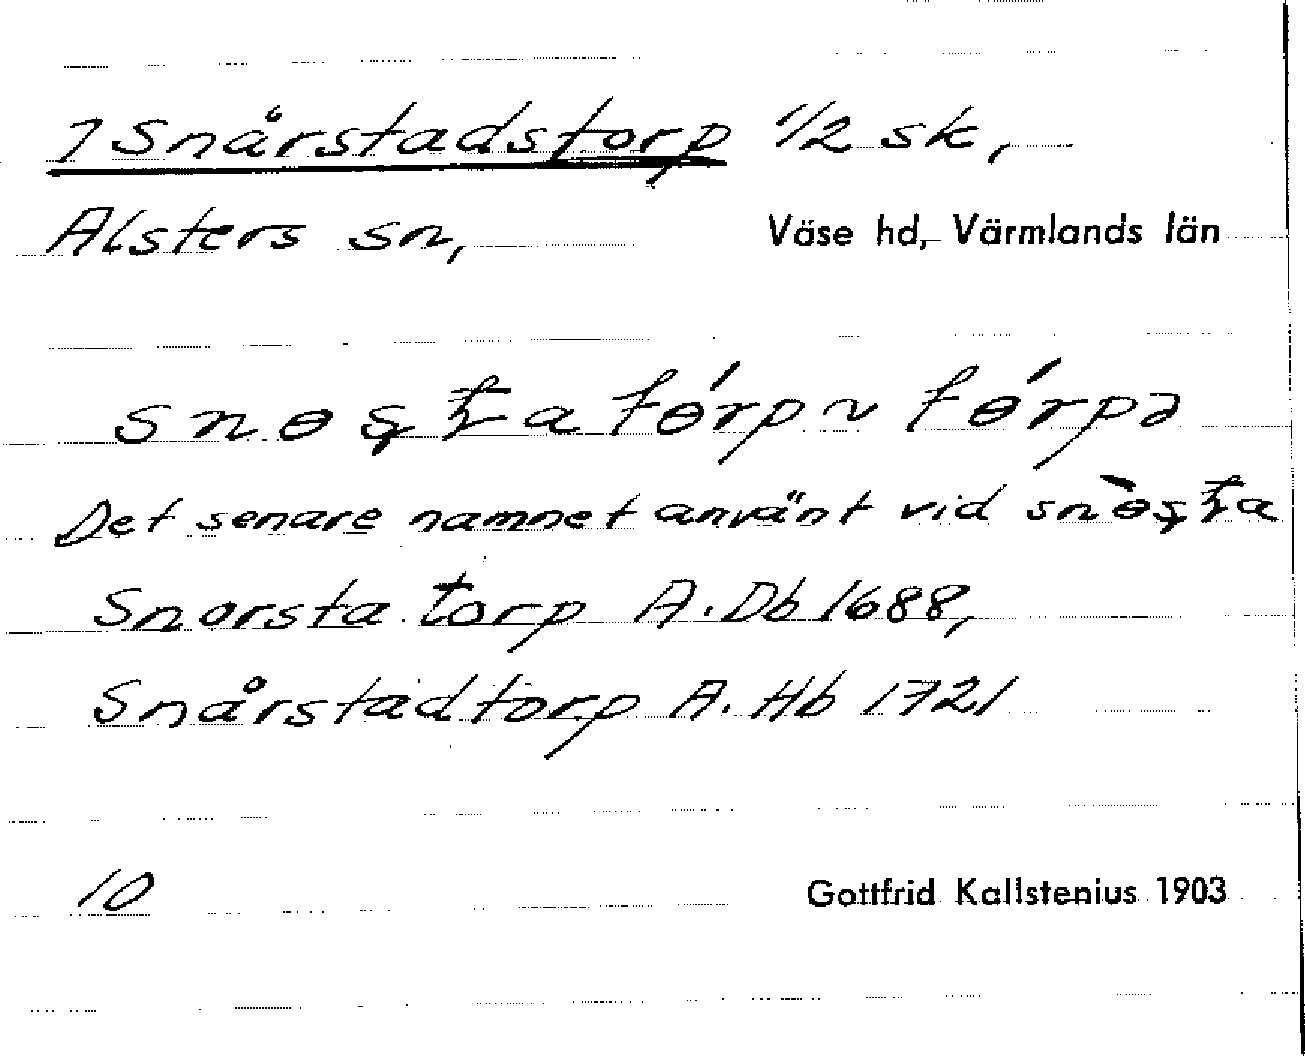 1 Snårstadstorp 1/2 sk,
Alsters sn, Väse hd, Värmlands län
snɵʂʈatɵ́rp ~ tɵ́rpə
Det senare namnet använt vid snɵ̀ʂʈa
Snorsta torp A. Db 1688,
Snårstadtorp A. Hb 1721
10 Gottfrid Kallstenius 1903